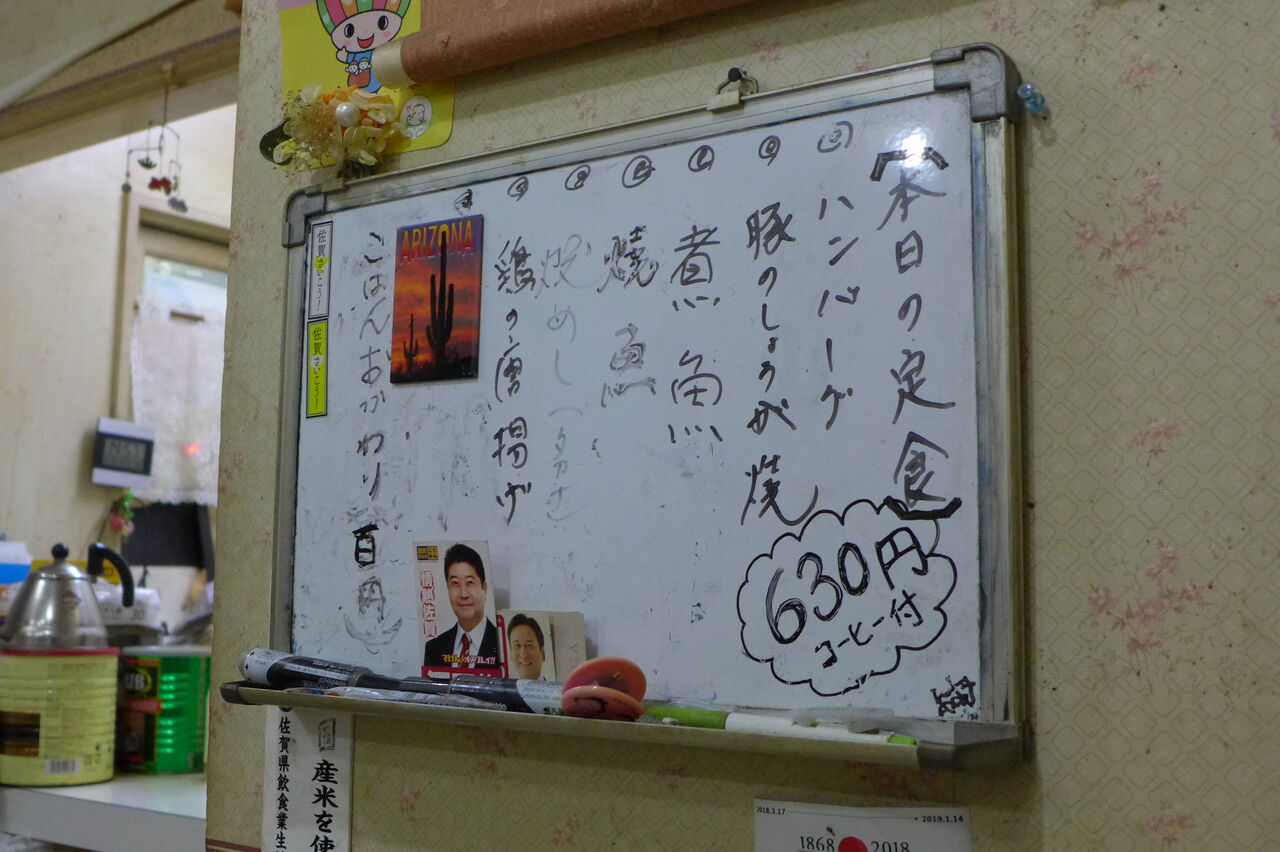 本日の定食
ハンバーグ
豚のしょうが焼
煮魚
焼魚
焼めし
鶏の唐揚げ
ごはんおかわり百円
630円
コーヒー付
ARIZONA
佐賀さいこう！
佐賀さいこう！
情熱佐賀
産米を使
佐賀県飲食業生
2018.3.17
2019.1.14
1868
2018